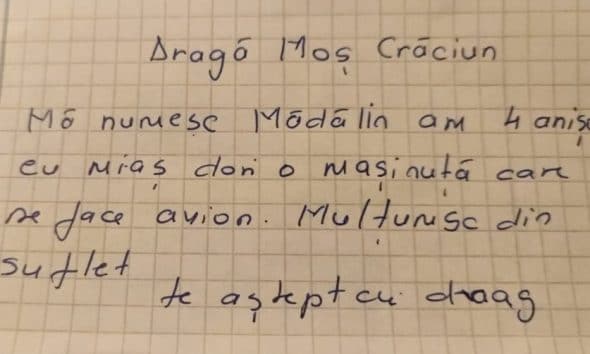 Dragă Moș Crăciun
Mă numesc Mădălin am 4 aniș
eu miaș dori o mașinuță care
se face avion. Mulțumesc din
suflet
te aștept cu draag